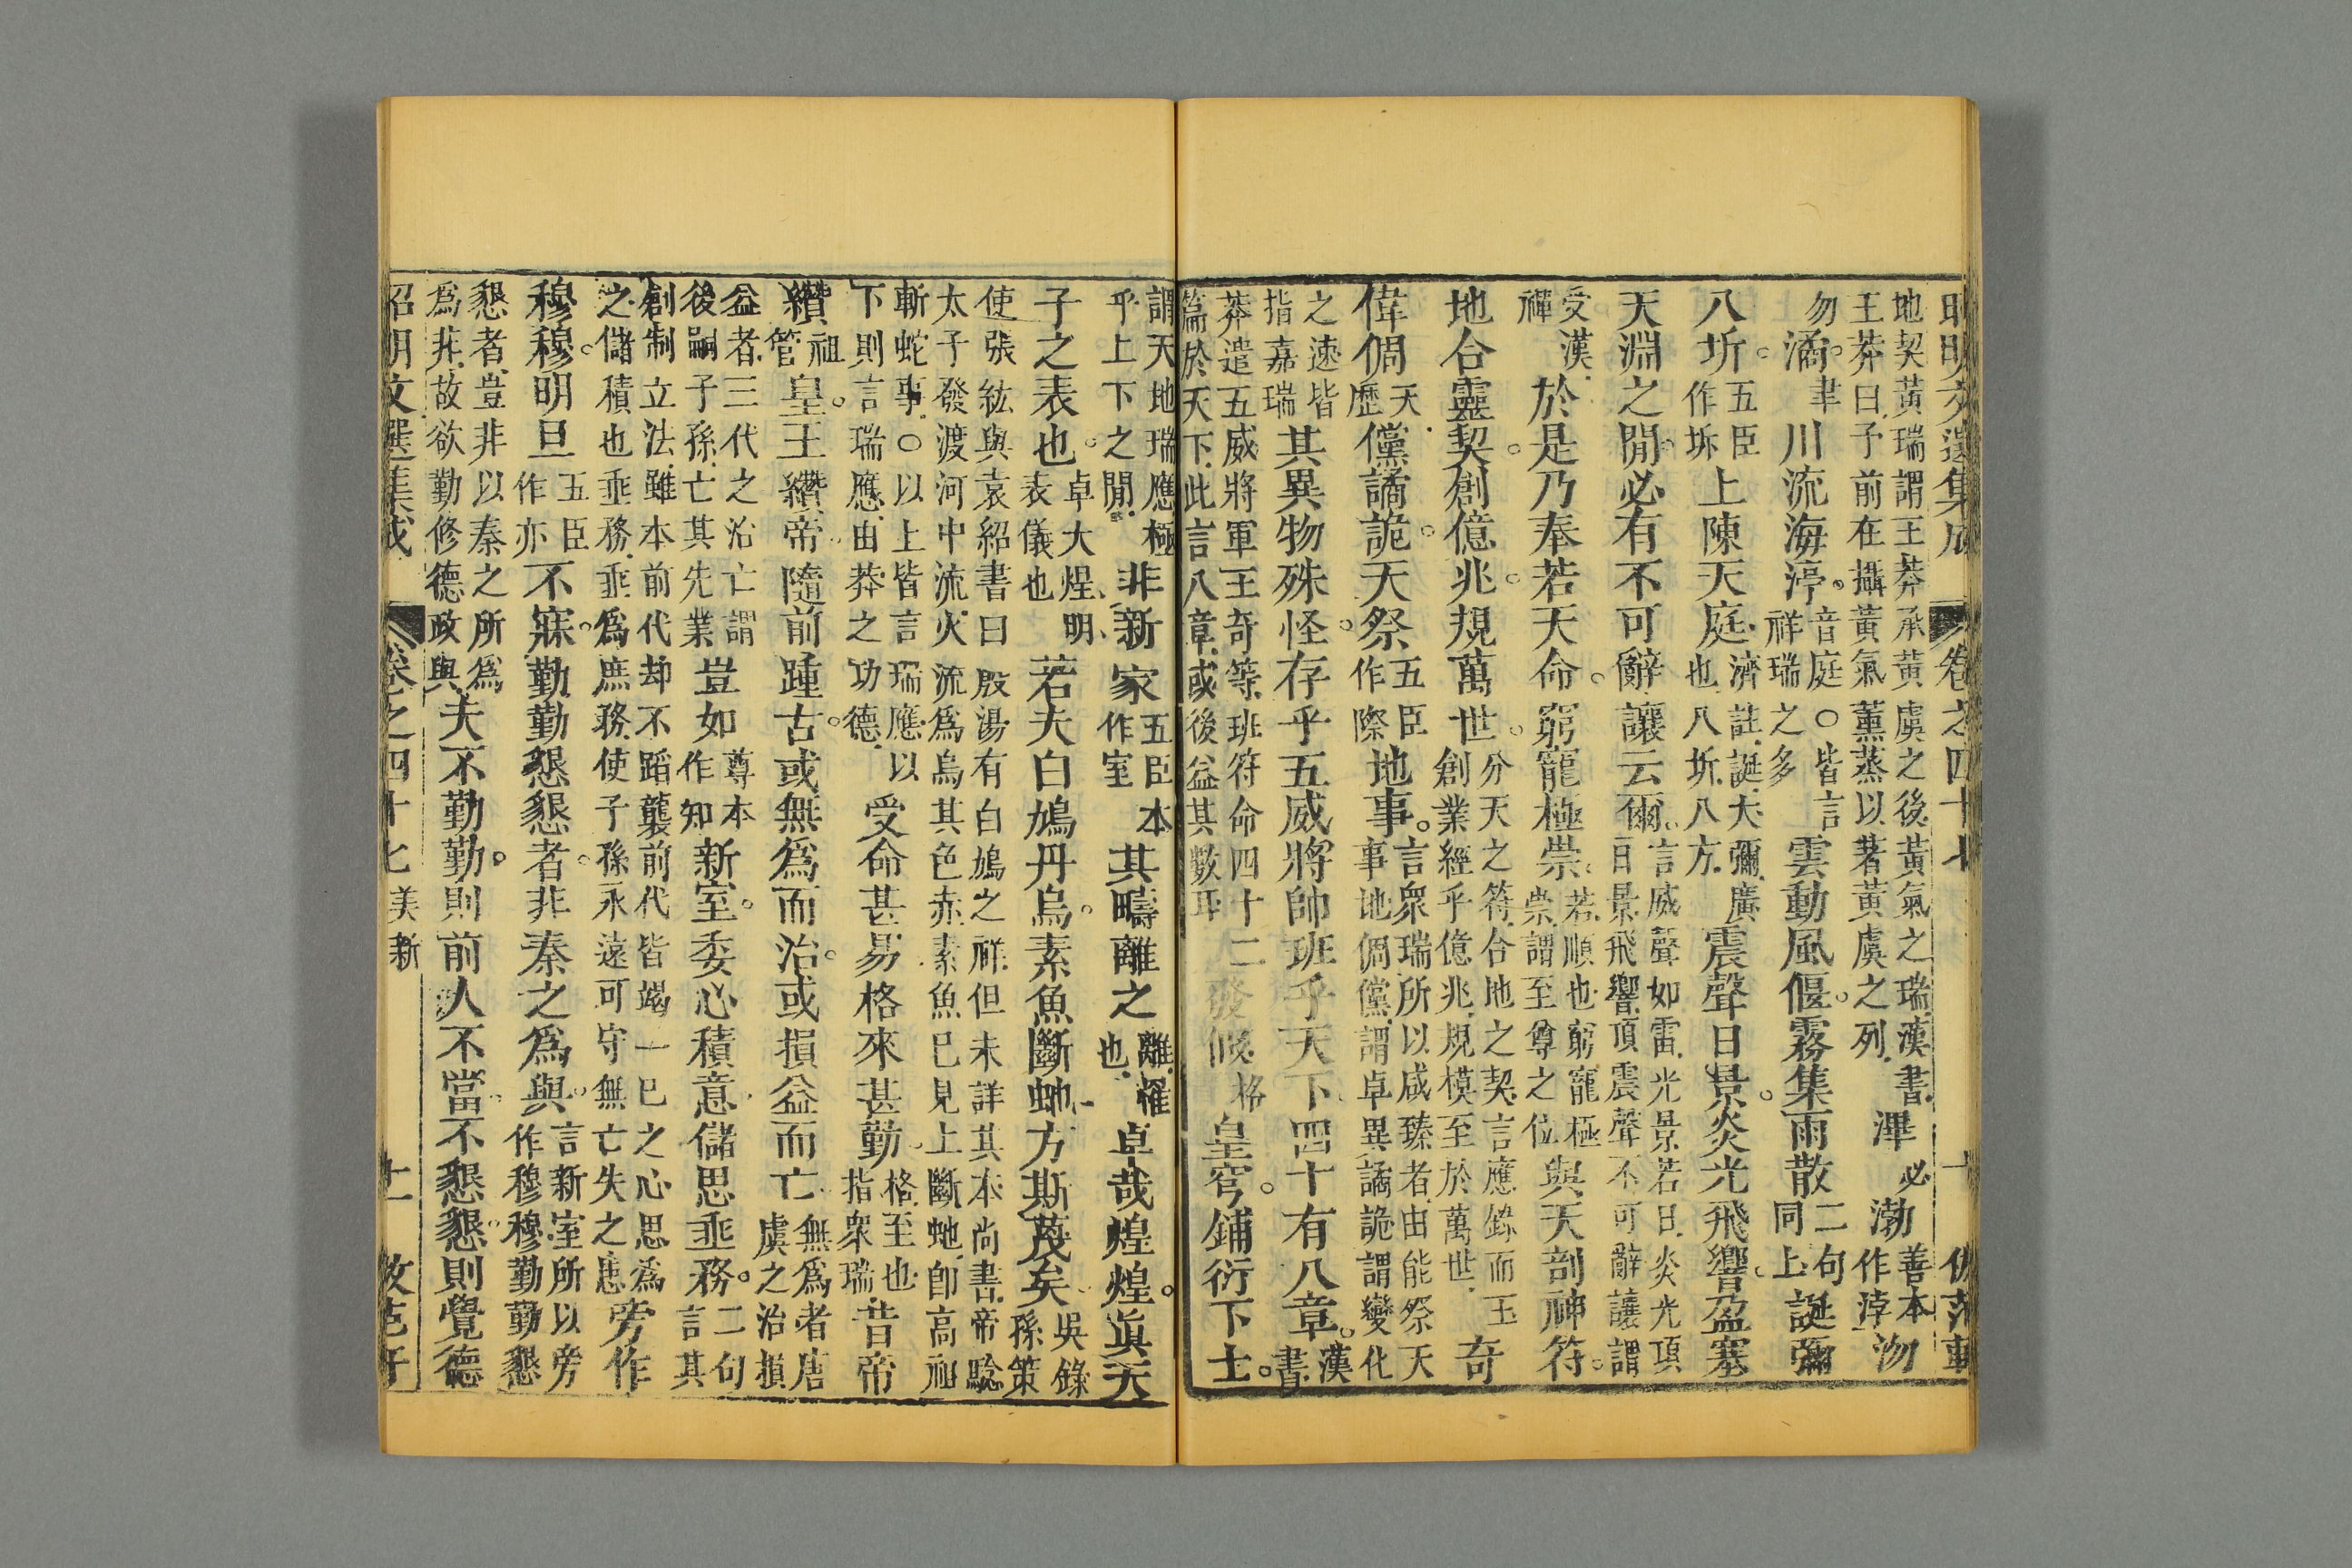 昭明文選集成 卷之四十七 十 倣范軒
地契黃瑞謂王莽承黃虞之後黃氣之瑞漢書
王莽曰予前在攝黃氣薰蒸以著黃虞之列
滭必渤善本作浡沕
勿潏聿川流海渟音庭〇皆言祥瑞之多雲動風偃霧集雨散二句同上誕彌
八圻五臣作坼上陳天庭濟註誕大彌廣也八圻八方震聲日景炎光飛響盈塞
天淵之閒必有不可辭讓云爾言威聲如雷光景若日炎光頂日景飛響頂震聲不可辭讓謂
受漢禪於是乃奉若天命窮寵極崇若順也窮寵極崇謂至尊之位與天剖神符
地合靈契創億兆規萬世分天之符合地之契言應錄而王創業經乎億兆規模至於萬世奇
偉倜儻譎詭天祭五臣作際地事言眾瑞所以咸臻者由能祭天事地倜儻謂卓異譎詭謂變化
之速皆指嘉瑞其異物殊怪存乎五威將帥班乎天下四十有八章漢書
莽遣五威將軍王奇等班符命四十二篇於天下此言八章或後益其數耳發假格皇穹鋪衍下土
謂天地瑞應極乎上下之閒非新家五臣本作室其疇離之離罹也卓哉煌煌眞天
子之表也卓大煌明表儀也若夫白鳩丹烏素魚斷虵方斯蔑矣吳錄孫策
使張紘與袁紹書曰殷湯有白鳩之祥但未詳其本尚書帝驗
太子發渡河中流火流為烏其色赤素魚已見上斷虵卽高祖
斬蛇事〇以上皆言瑞應以下則言瑞應由莽之功德受命甚易格來甚勤格至也指眾瑞昔帝
纘祖管皇王纘帝隨前踵古或無爲而治或損益而亡無爲者唐虞之治損
益者三代之治亡謂後嗣子孫亡其先業豈如尊本作知新室委心積意儲思垂務二句言其
創制立法雖本前代却不蹈襲前代皆竭一己之心思爲
之儲積也垂務垂爲庶務使子孫永遠可守無亡失之患旁作
穆穆明旦五臣作亦不寐勤勤懇懇者非秦之爲與言新室所以旁作穆穆勤勤懇
懇者豈非以秦之所爲爲非故欲勤修德政與夫不勤勤則前人不當不懇懇則覺德
昭明文選集成 卷之四十七 美新 十一 倣范軒